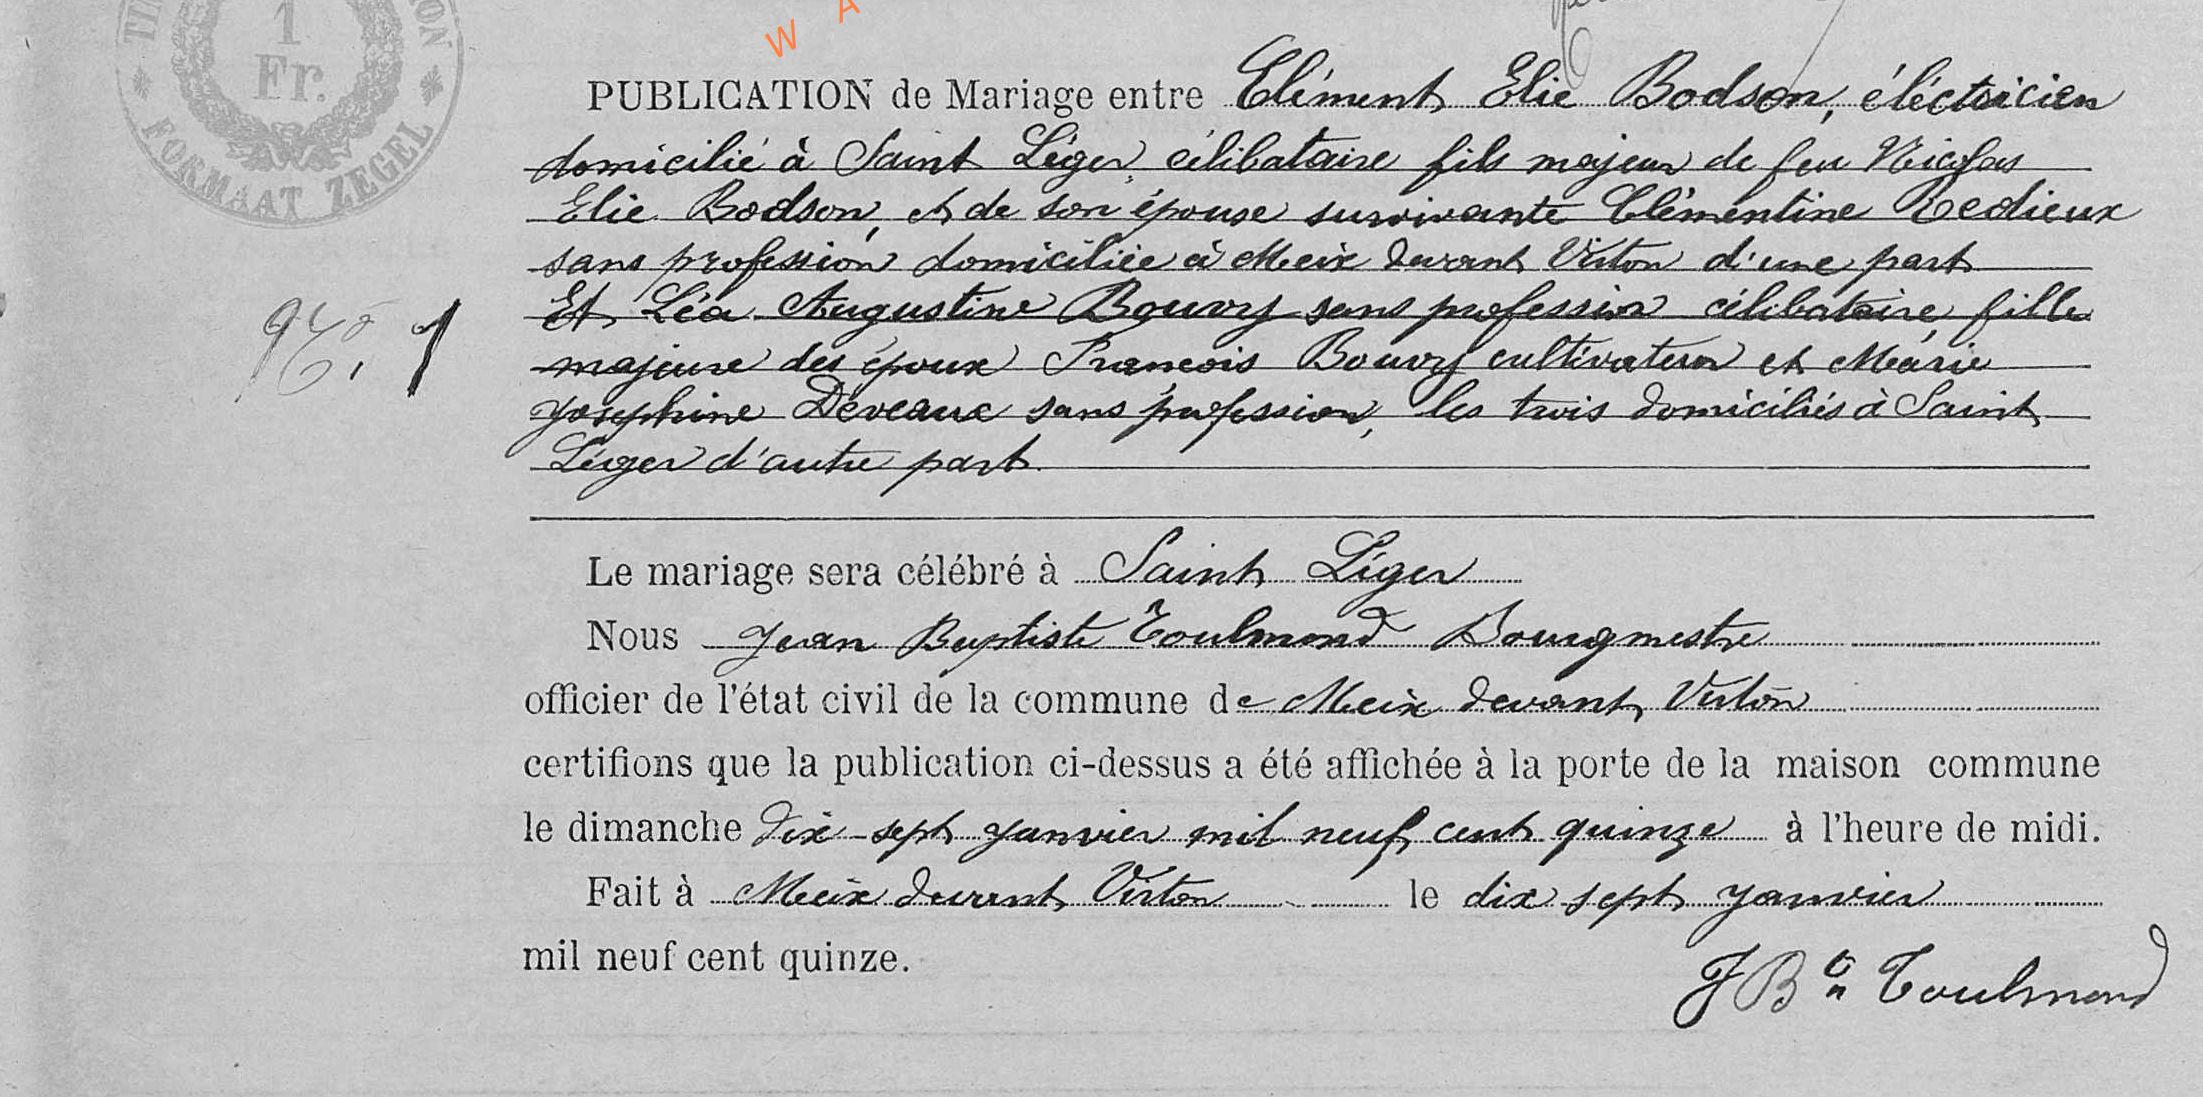 1
Fr.
FORMAAT ZEGEL
W A
PUBLICATION de Mariage entre Clément Elie Bodson, éléctricien
domicilié à Saint Léger, célibataire fils majeur de feu Nicolas
Elie Bodson, et de son épouse survivante Clémentine Tedieux
sans profession domiciliée à Meix devant Virton d'une part
Et Léa Augustine Bouvy sans profession célibataire, fille
majeure des époux François Bouvy cultivateur et Marie
Joséphine Deveaux sans profession, les trois domiciliés à Saint
Léger d'autre part
N° 1
Le mariage sera célébré à Saint Léger
Nous Jean Baptiste Toulmond Bourgmestre
officier de l'état civil de la commune de Meix devant Virton
certifions que la publication ci-dessus a été affichée à la porte de la maison commune
le dimanche dix-sept janvier mil neuf cent quinze à l'heure de midi.
Fait à Meix devant Virton le dix sept janvier
mil neuf cent quinze.
J B Toulmond